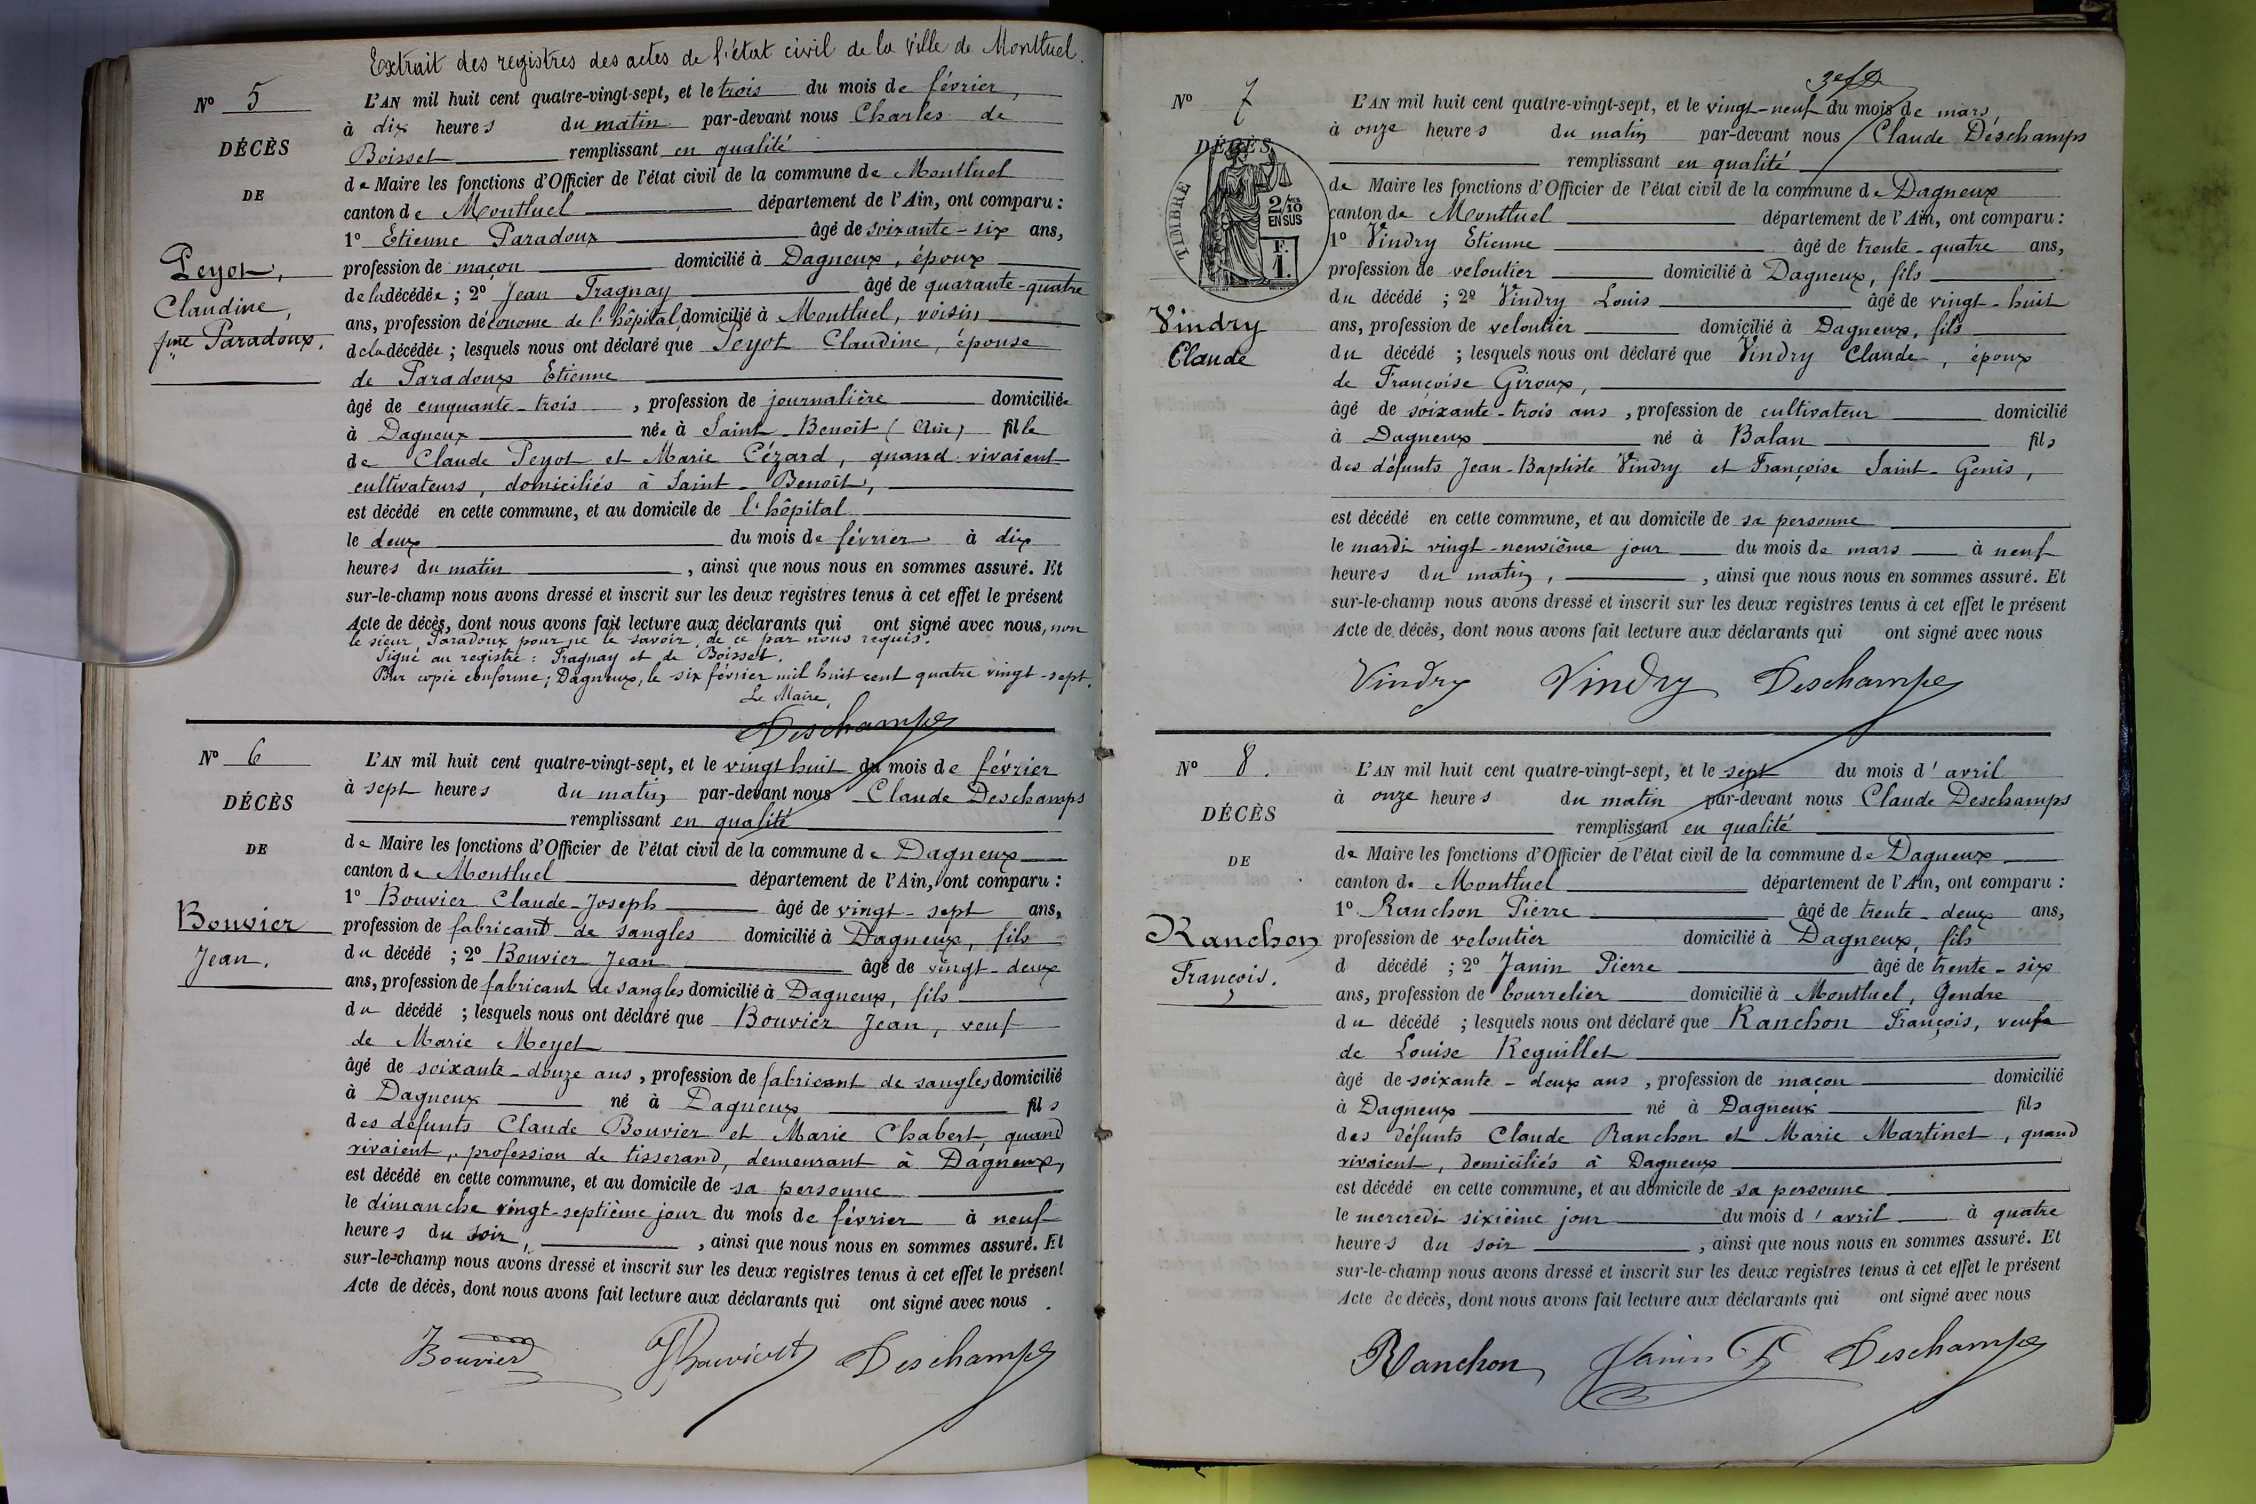 Extrait des registres des actes de l'état civil de la ville de Montluel.
N° 5
DÉCÈS
DE
Peyot,
Claudine,
fme Paradoux.
L'AN mil huit cent quatre-vingt-sept, et le trois du mois de février,
à dix heures du matin par-devant nous Charles de
Boisset remplissant en qualité
de Maire les fonctions d'Officier de l'état civil de la commune de Montluel
canton de Montluel département de l'Ain, ont comparu :
1° Etienne Paradoux âgé de soixante-six ans,
profession de maçon domicilié à Dagneux, époux
de la décédée ; 2° Jean Fragnay âgé de quarante-quatre
ans, profession d'économe de l'hôpital, domicilié à Montluel, voisin
de la décédée ; lesquels nous ont déclaré que Peyot Claudine, épouse
de Paradoux Etienne
âgé de cinquante-trois , profession de journalière domiciliée
à Dagneux née à Saint-Benoît (Ain) fille
de Claude Peyot et Marie Cézard, quand vivaient
cultivateurs, domiciliés à Saint-Benoît,
est décédé en cette commune, et au domicile de l'hôpital
le deux du mois de février à dix
heures du matin , ainsi que nous nous en sommes assuré. Et
sur-le-champ nous avons dressé et inscrit sur les deux registres tenus à cet effet le présent
Acte de décès, dont nous avons fait lecture aux déclarants qui ont signé avec nous, non
le sieur Paradoux pour ne le savoir, de ce par nous requis.
Signé au registre : Fragnay et de Boisset.
Pour copie conforme ; Dagneux, le six février mil huit cent quatre vingt-sept.
Le Maire,
Deschamps
N° 6
DÉCÈS
DE
Bouvier
Jean.
L'AN mil huit cent quatre-vingt-sept, et le vingt huit du mois de février
à sept heures du matin par-devant nous Claude Deschamps
remplissant en qualité
de Maire les fonctions d'Officier de l'état civil de la commune de Dagneux
canton de Montluel département de l'Ain, ont comparu :
1° Bouvier Claude-Joseph âgé de vingt-sept ans,
profession de fabricant de sangles domicilié à Dagneux, fils
du décédé ; 2° Bouvier Jean âgé de vingt-deux
ans, profession de fabricant de sangles domicilié à Dagneux, fils
du décédé ; lesquels nous ont déclaré que Bouvier Jean, veuf
de Marie Moyet
âgé de soixante-douze ans , profession de fabricant de sangles domicilié
à Dagneux né à Dagneux fils
des défunts Claude Bouvier et Marie Chabert, quand
vivaient, profession de tisserand, demeurant à Dagneux,
est décédé en cette commune, et au domicile de sa personne
le dimanche vingt-septième jour du mois de février à neuf
heures du soir, , ainsi que nous nous en sommes assuré. Et
sur-le-champ nous avons dressé et inscrit sur les deux registres tenus à cet effet le présent
Acte de décès, dont nous avons fait lecture aux déclarants qui ont signé avec nous .
Bouvier Deschamps
N° 7
DÉCÈS
TIMBRE
2/10
EN SUS
F.
1.
Vindry
Claude
L'AN mil huit cent quatre-vingt-sept, et le vingt-neuf du mois de mars,
à onze heures du matin par-devant nous Claude Deschamps
remplissant en qualité
de Maire les fonctions d'Officier de l'état civil de la commune de Dagneux
canton de Montluel département de l'Ain, ont comparu :
1° Vindry Etienne âgé de trente-quatre ans,
profession de veloutier domicilié à Dagneux, fils
du décédé ; 2° Vindry Louis âgé de vingt-huit
ans, profession de veloutier domicilié à Dagneux, fils
du décédé ; lesquels nous ont déclaré que Vindry Claude, époux
de Françoise Giroux,
âgé de soixante-trois ans , profession de cultivateur domicilié
à Dagneux né à Balan fils
des défunts Jean-Baptiste Vindry et Françoise Saint-Genis,
est décédé en cette commune, et au domicile de sa personne
le mardi vingt-neuvième jour du mois de mars à neuf
heures du matin, , ainsi que nous nous en sommes assuré. Et
sur-le-champ nous avons dressé et inscrit sur les deux registres tenus à cet effet le présent
Acte de décès, dont nous avons fait lecture aux déclarants qui ont signé avec nous
Vindry Vindry Deschamps
N° 8.
DÉCÈS
DE
Ranchon
François.
L'AN mil huit cent quatre-vingt-sept, et le sept du mois d'avril
à onze heures du matin par-devant nous Claude Deschamps
remplissant en qualité
de Maire les fonctions d'Officier de l'état civil de la commune de Dagneux
canton de Montluel département de l'Ain, ont comparu :
1° Ranchon Pierre âgé de trente-deux ans,
profession de veloutier domicilié à Dagneux, fils
d décédé ; 2° Janin Pierre âgé de trente-six
ans, profession de bourrelier domicilié à Montluel, Gendre
du décédé ; lesquels nous ont déclaré que Ranchon François, veuf
de Louise Reguillet
âgé de soixante-deux ans , profession de maçon domicilié
à Dagneux né à Dagneux fils
des défunts Claude Ranchon et Marie Martinet, quand
vivaient, domiciliés à Dagneux
est décédé en cette commune, et au domicile de sa personne
le mercredi sixième jour du mois d'avril à quatre
heures du soir , ainsi que nous nous en sommes assuré. Et
sur-le-champ nous avons dressé et inscrit sur les deux registres tenus à cet effet le présent
Acte de décès, dont nous avons fait lecture aux déclarants qui ont signé avec nous
Ranchon Janin P Deschamps